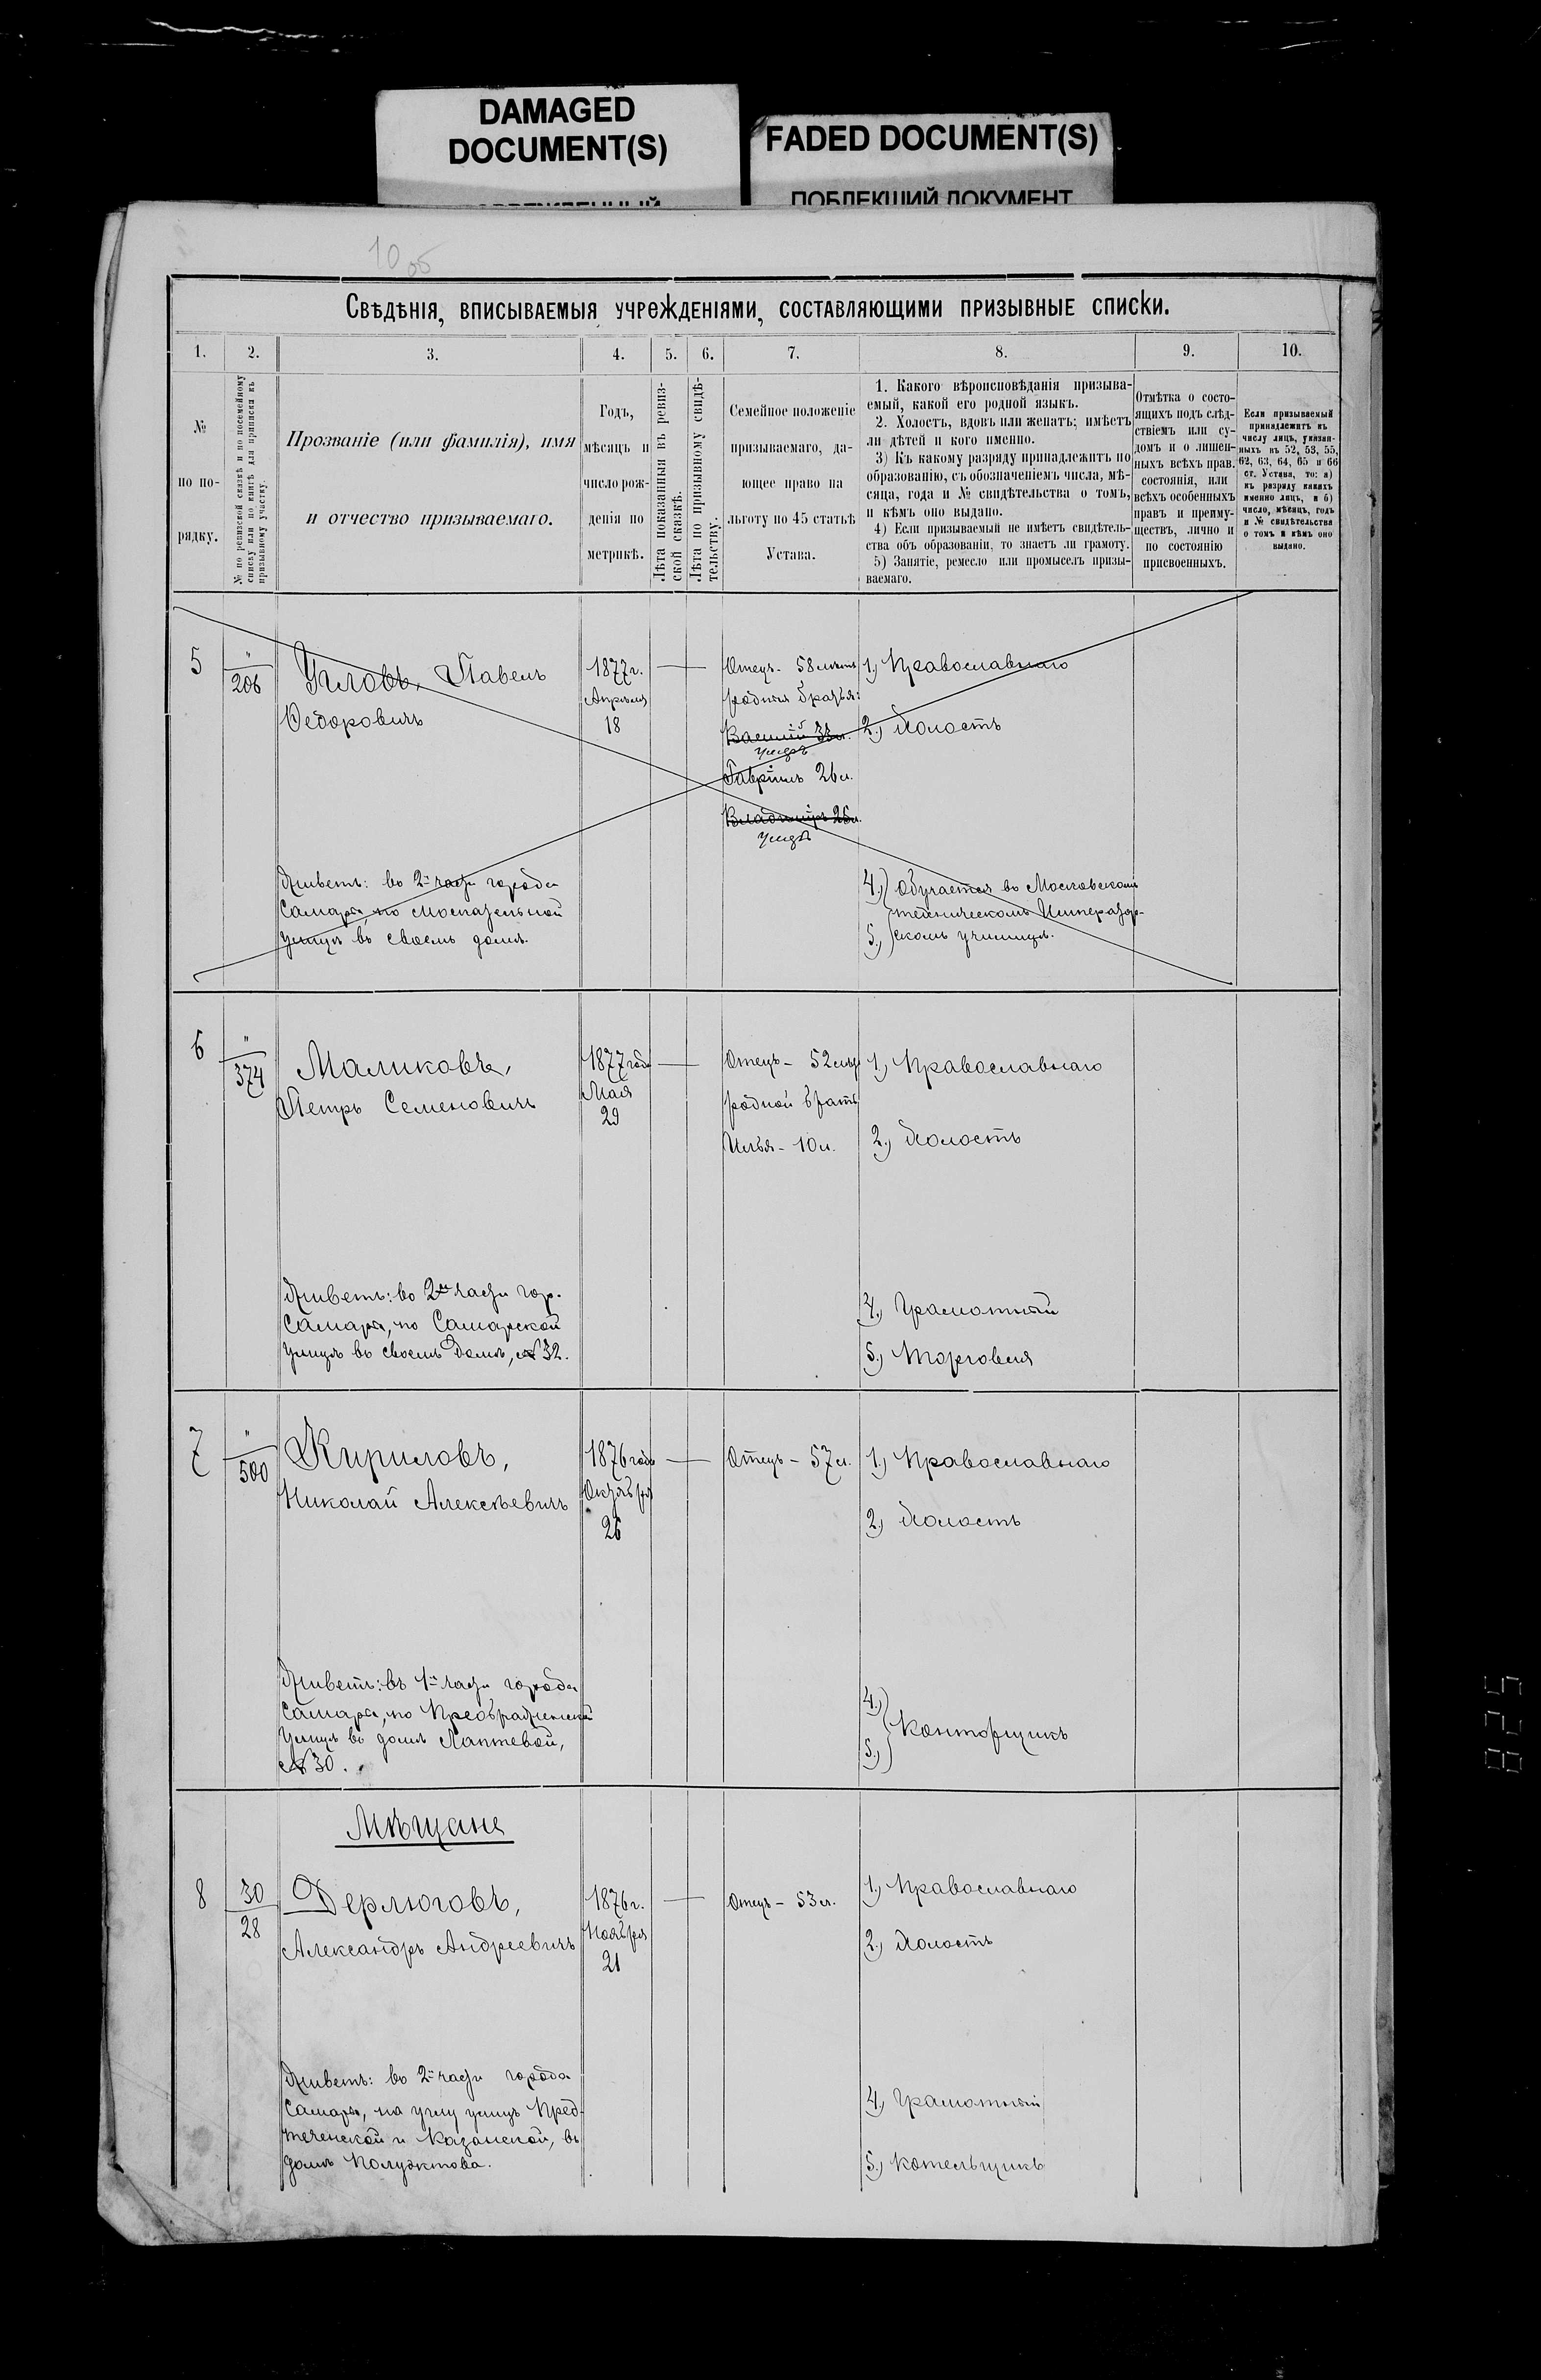 DAMAGED
DOCUMENT(S)
FADED DOCUMENT(S)
ПОБЛЕКШИЙ ДОКУМЕНТ
10 об
Свѣдѣнія, вписываемыя учрежденіями, составляющими призывные списки.
1. 2. 3. 4. 5. 6. 7. 8. 9. 10.
№
по по-
рядку.
№ по ревизской сказкѣ и по посемейному
списку или по книгѣ для приписки къ
призывному участку.
Прозваніе (или фамилія), имя
и отчество призываемаго.
Годъ,
мѣсяцъ и
число рож-
денія по
метрикѣ.
Лѣта показанныя въ ревиз-
ской сказкѣ.
Лѣта по призывному свидѣ-
тельству.
Семейное положеніе
призываемаго, да-
ющее право на
льготу по 45 статьѣ
Устава.
1. Какого вѣроисповѣданія призыва-
емый, какой его родной языкъ.
2. Холостъ, вдовъ или женатъ; имѣетъ
ли дѣтей и кого именно.
3) Къ какому разряду принадлежитъ по
образованію, съ обозначеніемъ числа, мѣ-
сяца, года и № свидѣтельства о томъ,
и кѣмъ оно выдано.
4) Если призываемый не имѣетъ свидѣтель-
ства объ образованіи, то знаетъ ли грамоту.
5) Занятіе, ремесло или промыселъ призы-
ваемаго.
Отмѣтка о состо-
ящихъ подъ слѣд-
ствіемъ или су-
домъ и о лишен-
ныхъ всѣхъ прав.
состоянія, или
всѣхъ особенныхъ
правъ и преиму-
ществъ, лично и
по состоянію
присвоенныхъ.
Если призываемый
принадлежитъ къ
числу лицъ, указан-
ныхъ въ 52, 53, 55,
62, 63, 64, 65 и 66
ст. Устава, то: а)
къ разряду какихъ
именно лицъ, и б)
число, мѣсяцъ, годъ
и № свидѣтельства
о томъ и кѣмъ оно
выдано.
5
"
206
Угловъ, Павелъ
Федоровичъ
1877 г.
Апрѣля
18
Отецъ - 58 лѣтъ
родные братья:
Василій 33 л.
умеръ
Гавріилъ 26 л.
Владиміръ 25 л.
умеръ
1.) Православнаго
2.) Холостъ
Живетъ: во 2й части города
Самары, по Москательной
улицѣ въ своемъ домѣ.
4.) Обучается въ Московскомъ
техническомъ Император-
5.) скомъ училищѣ.
6
"
374
Маликовъ,
Петръ Семеновичъ
1877 года
Мая
29
Отецъ - 52 лѣтъ
родной братъ
Илья - 10 л.
1.) Православнаго
2.) Холостъ
Живетъ: во 2й части гор.
Самары, по Самарской
улицѣ въ своемъ домѣ, № 32.
4.) Грамотный
5.) Торговля
7
"
500
Кириловъ,
Николай Алексѣевичъ
1876 года
Октября
26
Отецъ - 57 л.
1.) Православнаго
2.) Холостъ
Живетъ: въ 1й части города
Самары, по Преображенской
улицѣ въ домѣ Лаптевой,
№ 30.
4.)
5.) Конторщикъ
Мѣщане
8
30
28
Дерлюговъ,
Александръ Андреевичъ
1876 г.
Ноября
21
Отецъ - 53 л.
1.) Православнаго
2.) Холостъ
Живетъ: во 2й части города
Самары, на углу улицъ Пред-
теченской и Казанской, въ
домѣ Полуэктова.
4.) Грамотный
5.) Котельщикъ
825